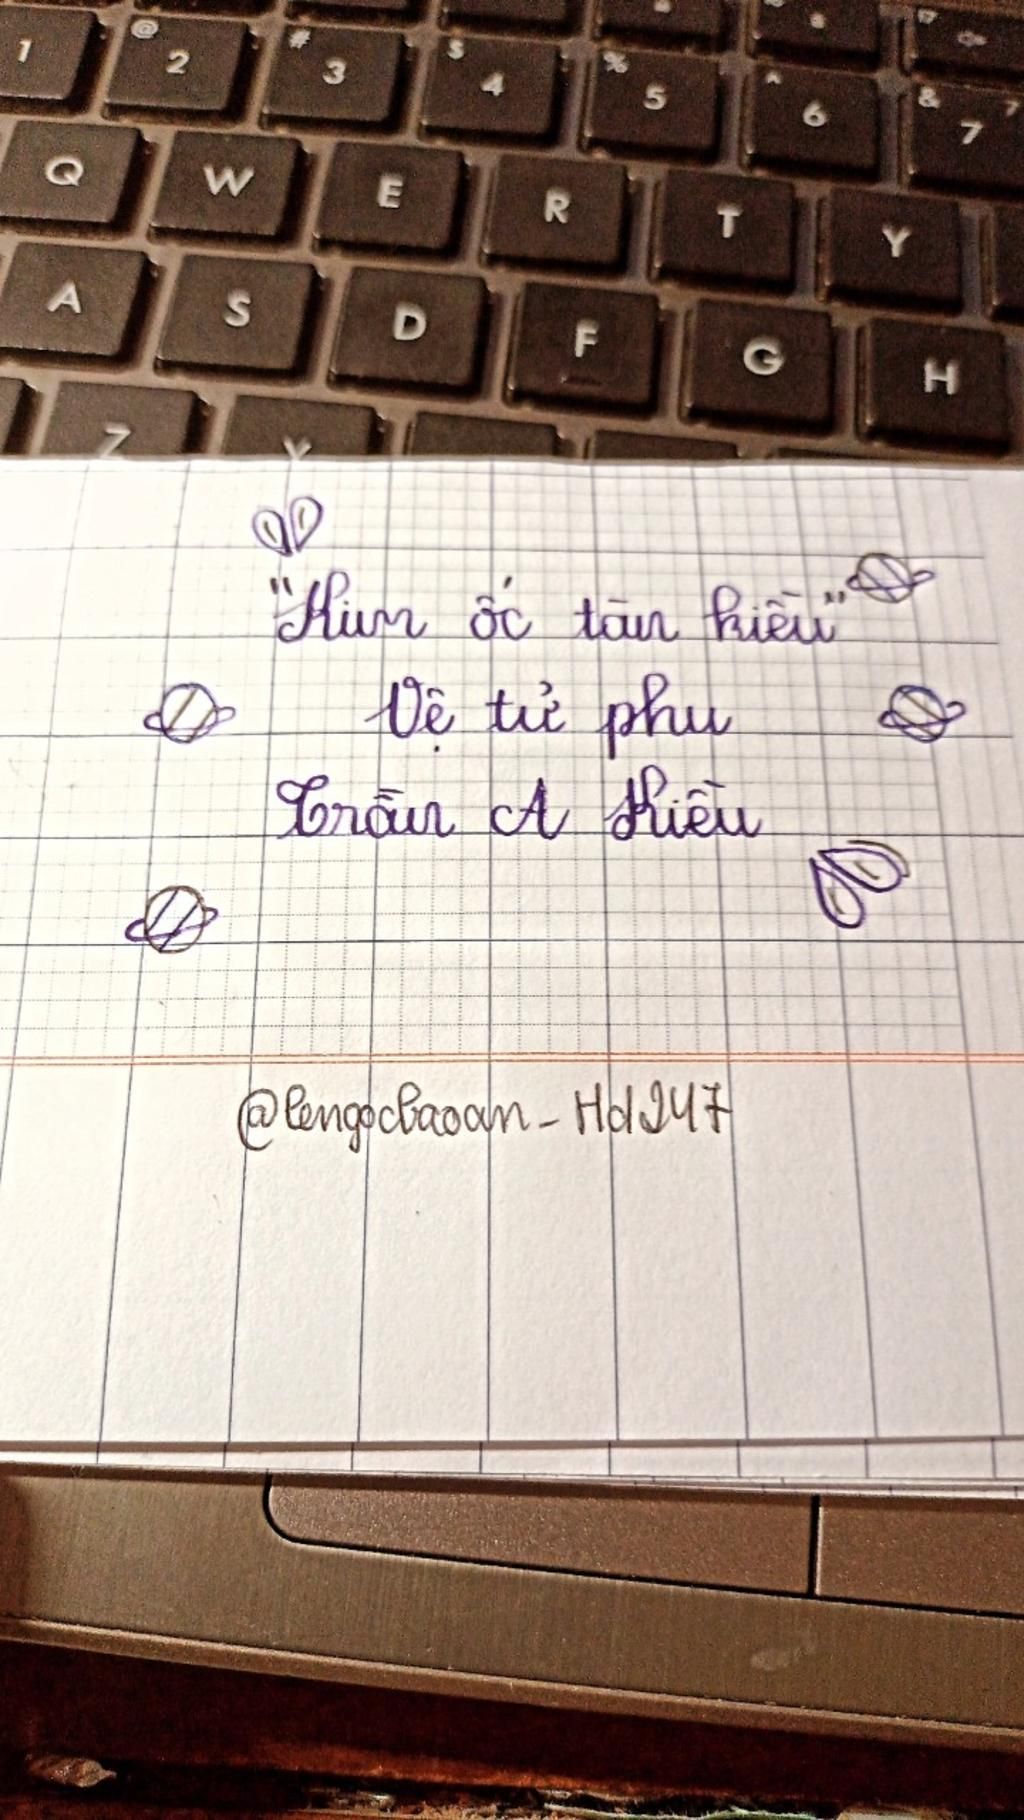 1 @ 2 # 3 $ 4 % 5 ^ 6 & 7 7
Q W E R T Y
A S D F G H
Z
"Kim ốc tàn kiều"
Vệ tử phu
Trần A Kiều
@lengocbaoan_Hd247